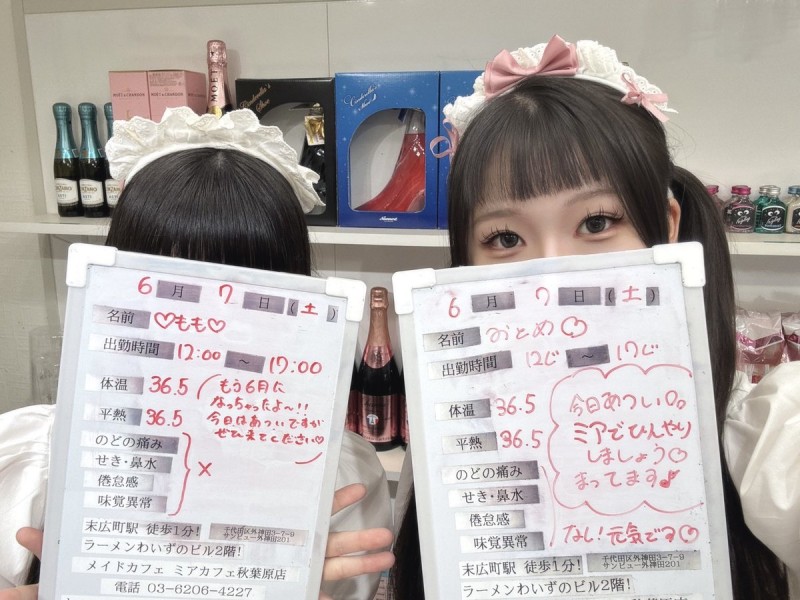 6月7日(土)
名前 ♡もも♡
出勤時間 12:00 ～ 17:00
体温 36.5
平熱 36.5
もう6月に
なっちゃったよ〜!!
今日はあついですが
ぜひ来てください♡
のどの痛み
せき・鼻水
倦怠感
味覚異常
×
末広町駅 徒歩1分!
千代田区外神田3-7-9
サンビュー外神田201
ラーメンわいずのビル2階!
メイドカフェ ミアカフェ秋葉原店
電話 03-6206-4227
6月7日(土)
名前 おとめ♡
出勤時間 12じ ～ 17じ
体温 36.5
平熱 36.5
今日あつい
ミアでひんやり
しましょう♡
まってます♪
のどの痛み
せき・鼻水
倦怠感
味覚異常
なし!元気です♡
末広町駅 徒歩1分!
千代田区外神田3-7-9
サンビュー外神田201
ラーメンわいずのビル2階!
MOËT